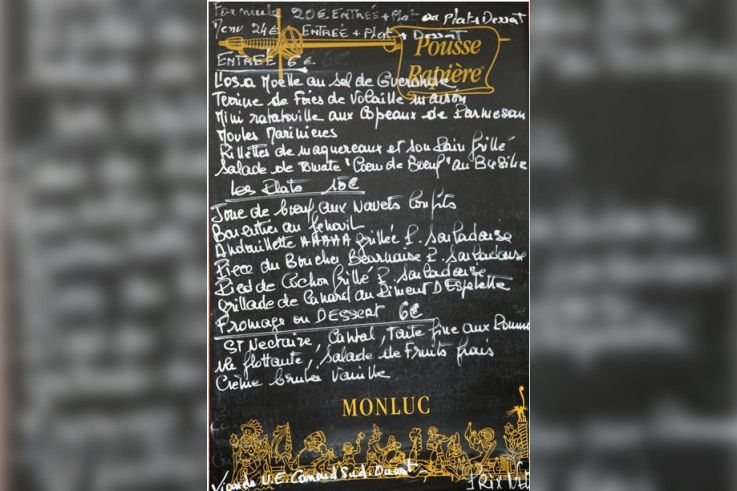 Formule 20€ ENTRÉE + Plat ou Plat + Dessert
Menu 24€ ENTRÉE + Plat + Dessert
Pousse
Rapière
ENTRÉE 6€
L'os a Moelle au sel de Guerande
Terrine de Foies de Volaille maison
Mini ratatouille aux Copeaux de Parmesan
Moules Marinieres
Rillettes de maquereaux et son Pain Grillé
Salade de Tomate "Coeur de Boeuf" au Basilic
Les Plats 15€
Joue de boeuf aux Navets Confits
au fenouil
Andouillette AAAAA Grillée P. Sarladaise
Piece du Boucher Bearnaise P. Sarladaise
Pied de Cochon Grillé P. Sarladaise
Grillade de Canard au Piment D'Espelette
Fromage ou DESSERT 6€
St Nectaire, Cantal, Tarte fine aux Pomme
flottante, Salade de Fruits frais
Crème brulee Vanille
MONLUC
Viande U.E. Canard Sud-Ouest
PRIX